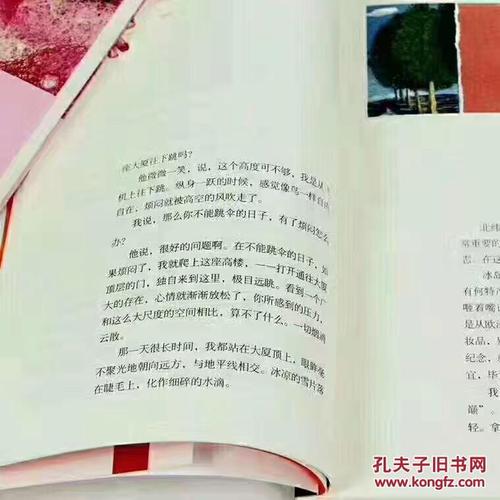 座大厦往下跳吗？
他微微一笑，说，这个高度可不够，我是从飞
机上往下跳。纵身一跃的时候，感觉像鸟一样自由
自在，烦闷就被高空的风吹走了。
我说，那么你不能跳伞的日子，有了烦闷怎么
办？
他说，很好的问题啊。在不能跳伞的日子，如
果烦闷了，我就爬上这座高楼，——打开通往大厦
顶层的门，独自来到这里，极目远眺。看到一个广
大的存在，心情就渐渐放松了，你所感到的压力，
和这么大尺度的空间相比，算不了什么。一切烟消
云散。
那一天很长时间，我都站在大厦顶上，眼眸毫
不聚光地朝向远方，与地平线相交。冰凉的雪片落
在睫毛上，化作细碎的水滴。
北纬
常重要的
志。在这
冰岛
有何特产
咂着嘴说
是从欧洲
妆品，别
纪念，
宜，毕
我
巅”。
轻。拿
孔夫子旧书网
www.kongfz.com